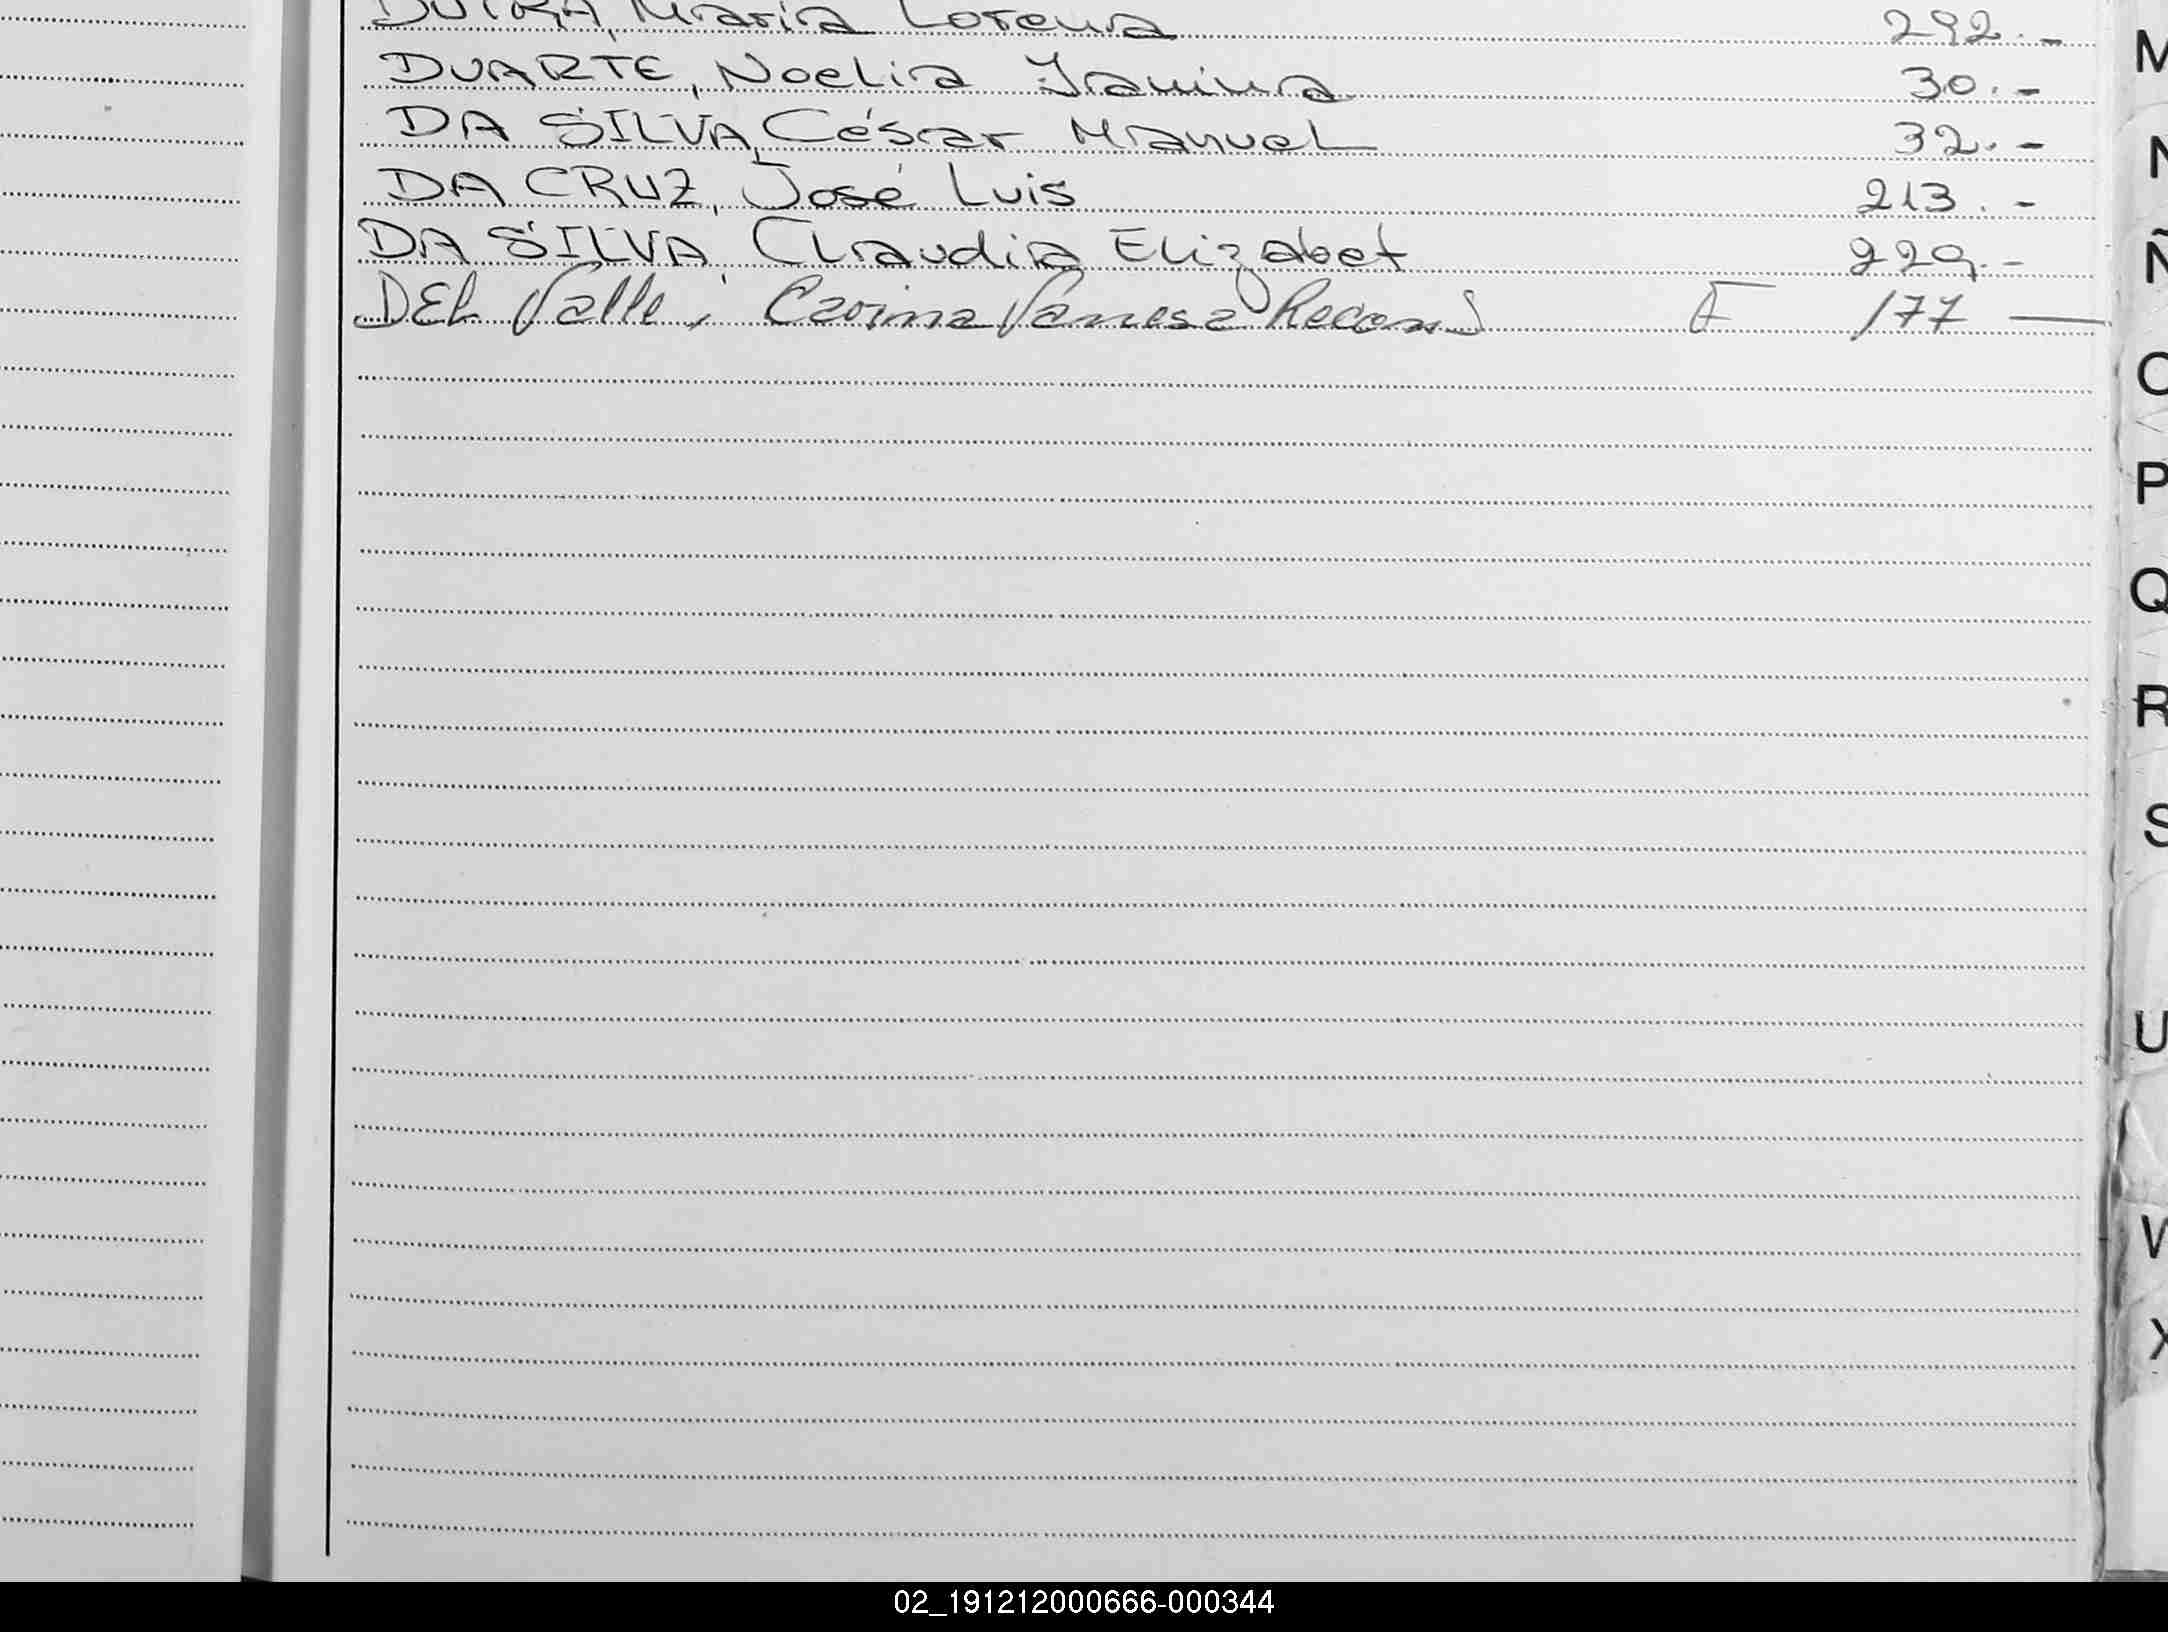 DUTRA, María Lorena 292.-
DUARTE, Noelia Yanina 30.-
DA SILVA, César Manuel 32.-
DA CRUZ, José Luis 213.-
DA SILVA, Claudia Elizabet 229.-
DEL Valle, Carina Vanesa Recon F 177 —
M
N
Ñ
O
P
Q
R
S
U
V
X
02_191212000666-000344